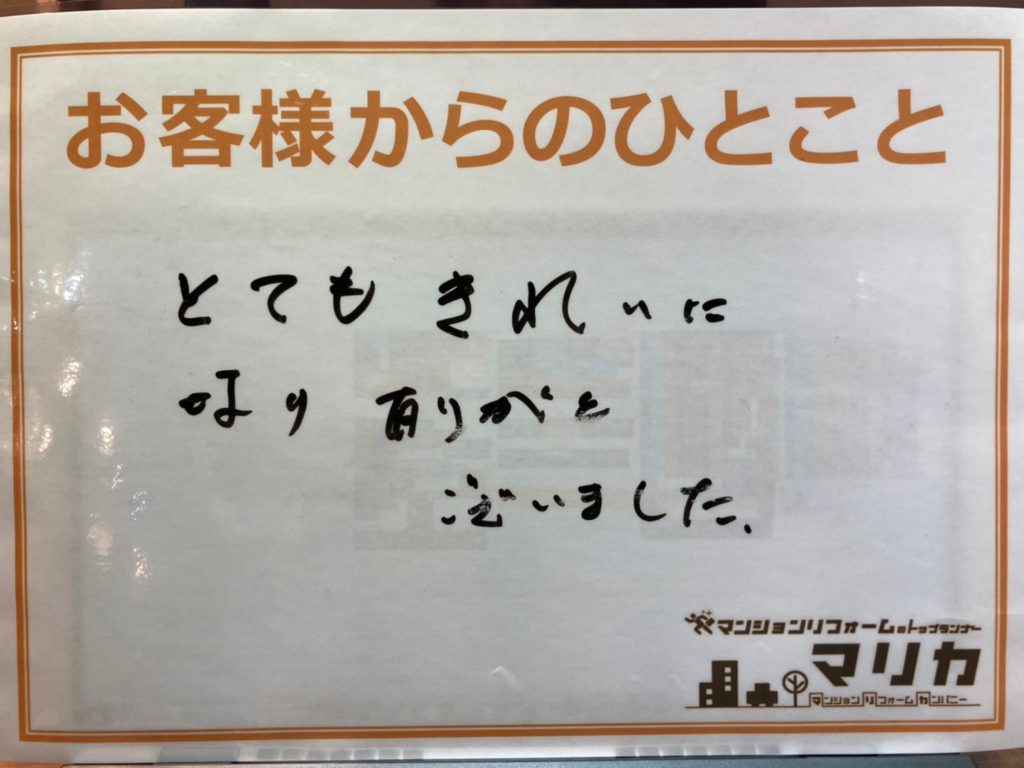 お客様からのひとこと
とてもきれいに
なり 有りがと
ございました、
マンションリフォームのトップランナー
マリカ
マンションリフォームカンパニー